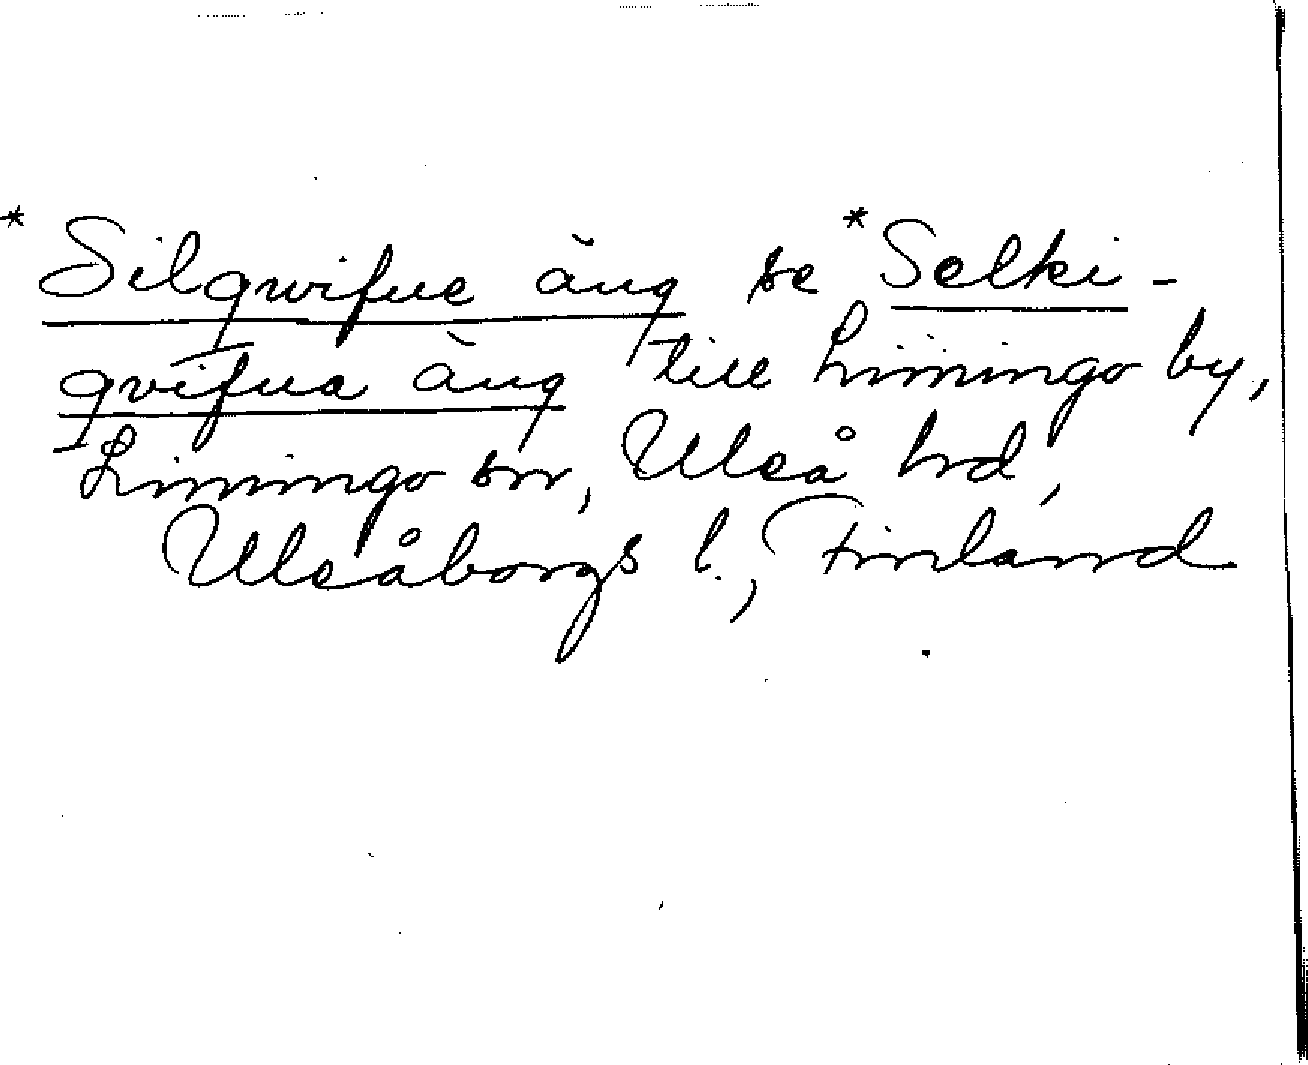 * Silqwifue äng se * Selki-
qvifua äng till Limingo by,
Limingo sn, Uleå hd,
Uleåborgs l., Finland